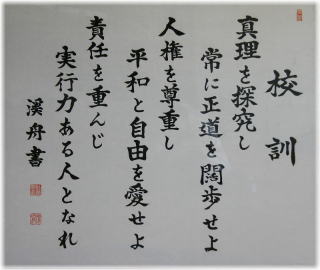 校訓
真理を探究し
常に正道を闊歩せよ
人権を尊重し
平和と自由を愛せよ
責任を重んじ
実行力ある人となれ
溪舟書